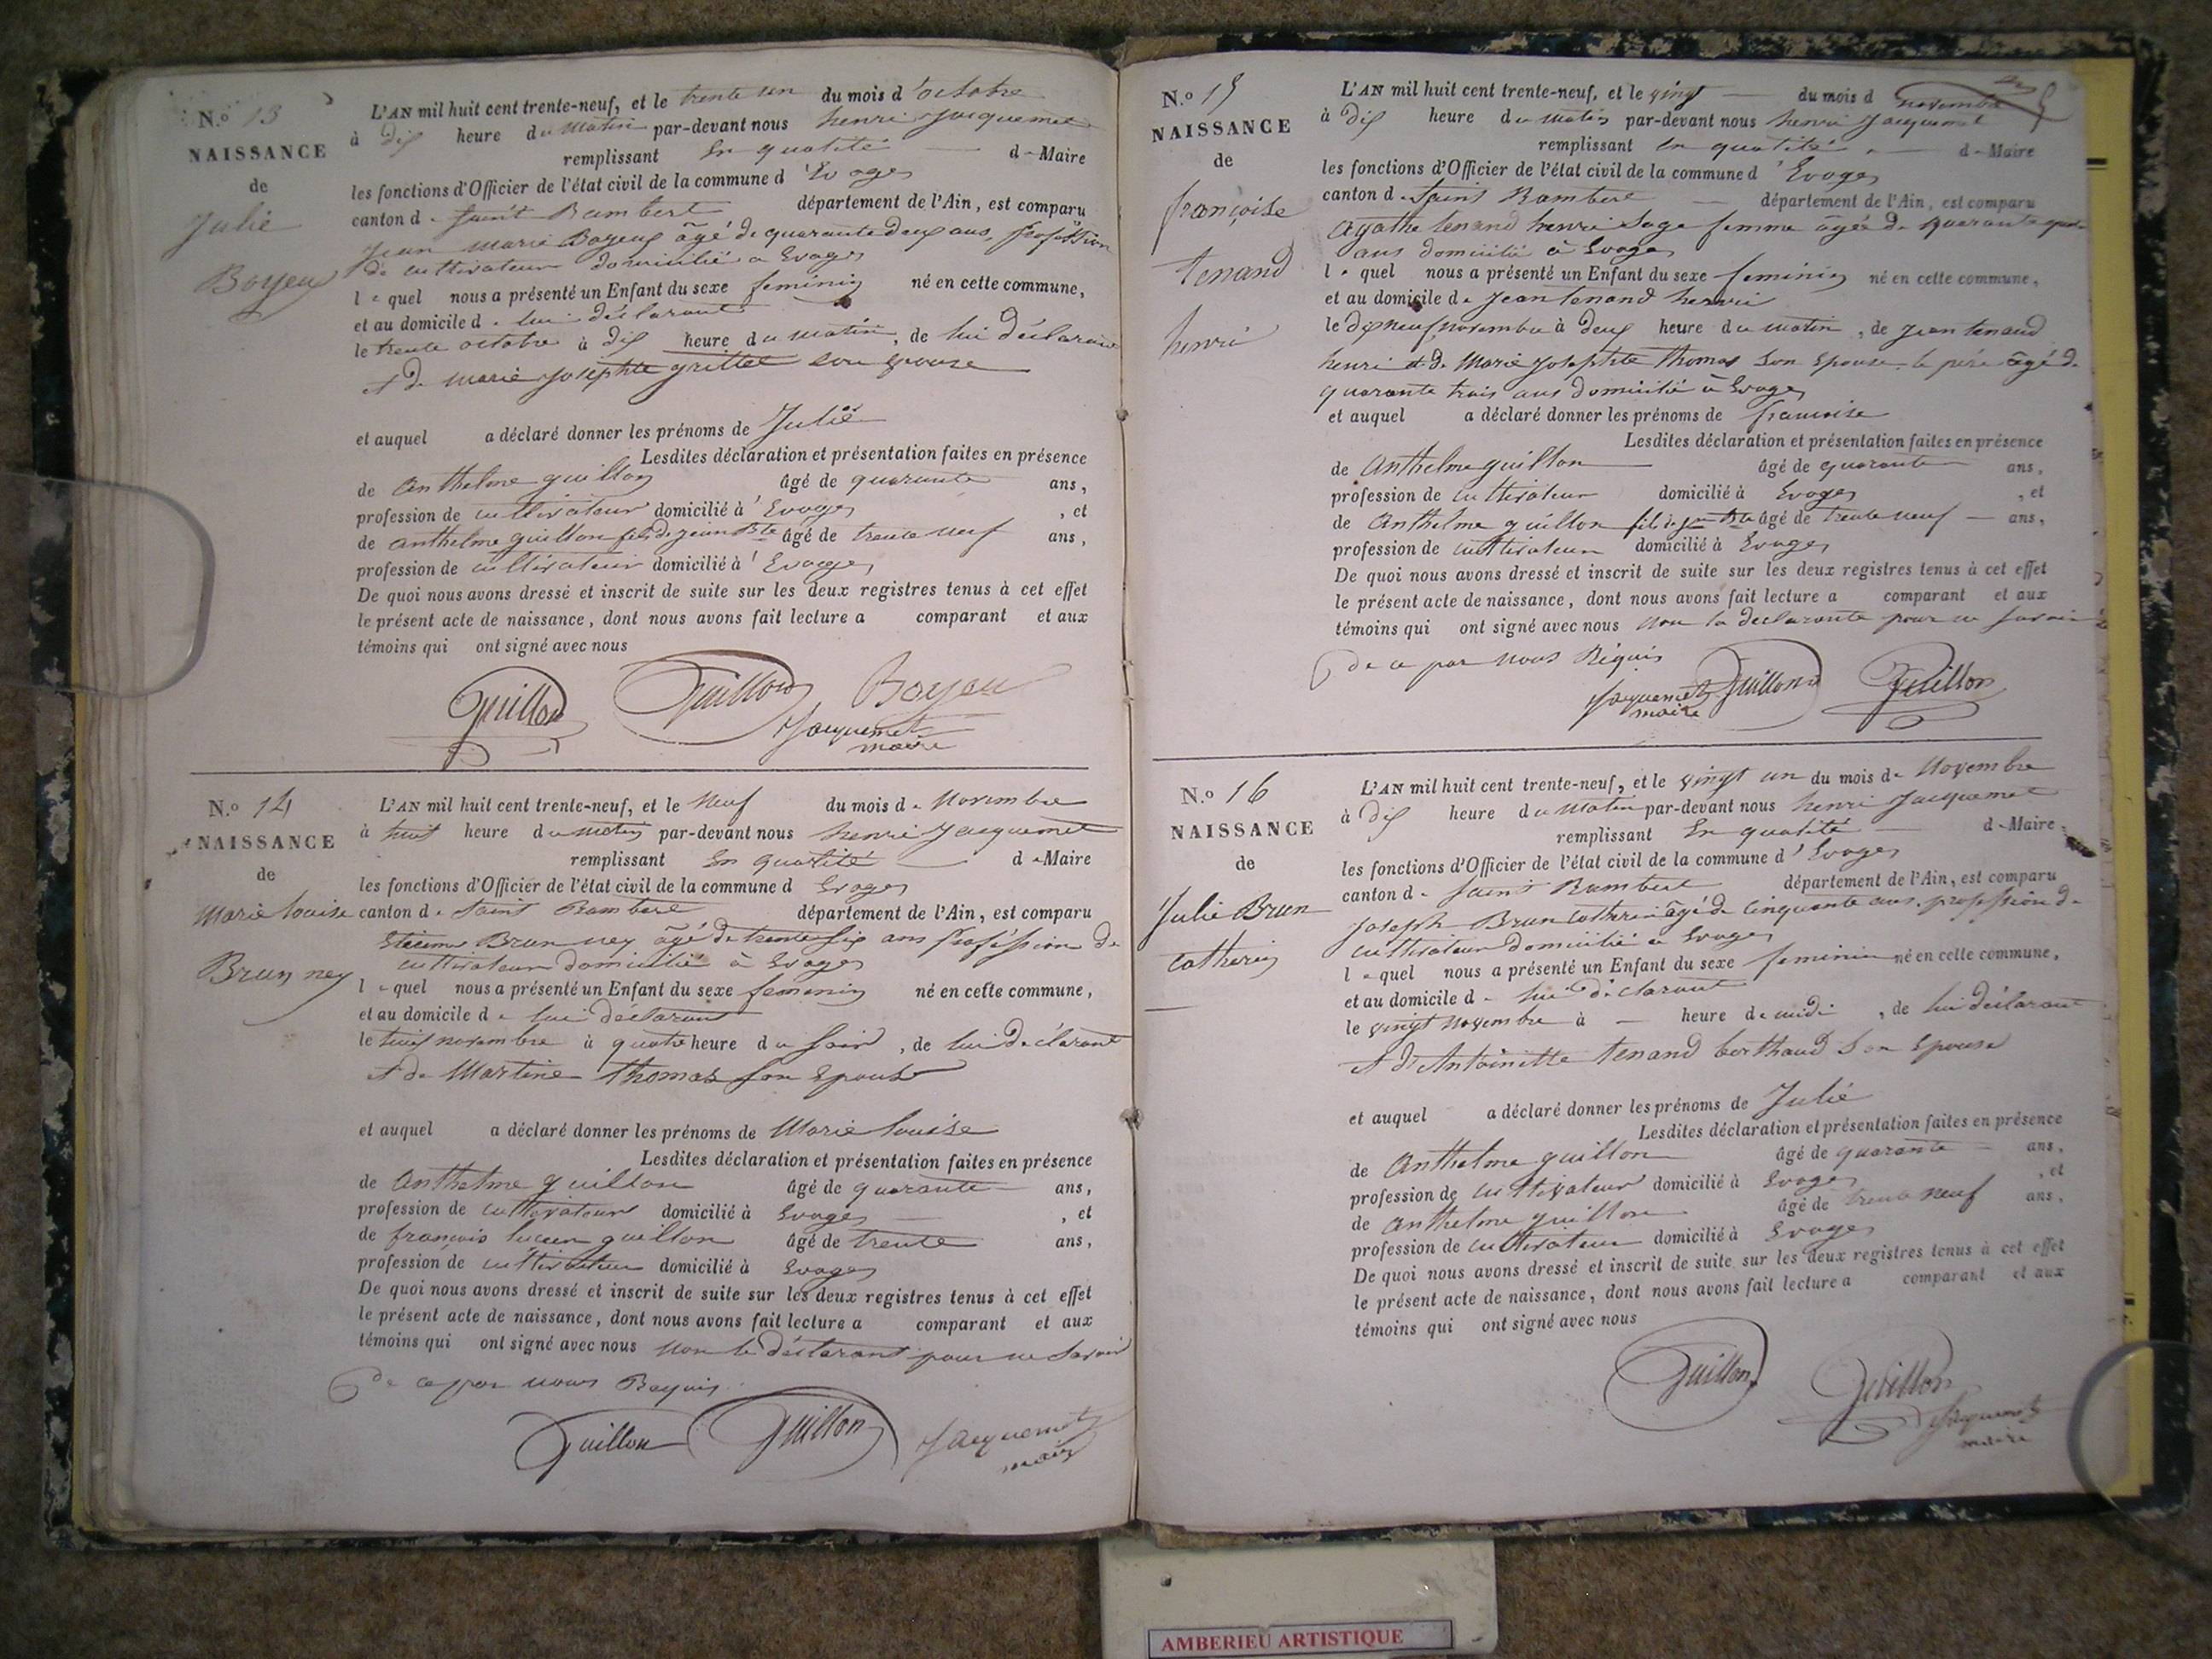 N.o 13
NAISSANCE
de
Julie
Boyeux
L'AN mil huit cent trente-neuf, et le trente un du mois d'octobre
à dix heure du matin par-devant nous henri Jacquemet
remplissant En qualité d-Maire
les fonctions d'Officier de l'état civil de la commune d'Evoges
canton de Saint Rambert département de l'Ain, est comparu
Jean marie Boyeux âgé de quarante deux ans, profession
de cultivateur domicilié a Evoges
lequel nous a présenté un Enfant du sexe feminin né en cette commune,
et au domicile de lui déclarant
le trente octobre à dix heure du matin, de lui déclarant
et de marie josephte grittet son epouse
et auquel a déclaré donner les prénoms de Julie
Lesdites déclaration et présentation faites en présence
de anthelme guillon âgé de quarante ans,
profession de cultivateur domicilié à Evoges, et
de anthelme guillon fils de jean Bte âgé de trente neuf ans,
profession de cultivateur domicilié à Evoges
De quoi nous avons dressé et inscrit de suite sur les deux registres tenus à cet effet
le présent acte de naissance, dont nous avons fait lecture a comparant et aux
témoins qui ont signé avec nous
Guillon Guillon Boyeu
Jacquemet
maire
N.o 14
NAISSANCE
de
Marie louise
Brun ney
L'AN mil huit cent trente-neuf, et le Neuf du mois de Novembre
à huit heure du matin par-devant nous henri Jacquemet
remplissant En qualité d-Maire
les fonctions d'Officier de l'état civil de la commune d Evoges
canton de Saint Rambert département de l'Ain, est comparu
Etienne Brun ney âgé de trente six ans profession de
cultivateur domicilié à Evoges
lequel nous a présenté un Enfant du sexe feminin né en cette commune,
et au domicile de lui declarant
le huit novembre à quatre heure du soir, de lui déclarant
et de Martine thomas son epouse
et auquel a déclaré donner les prénoms de Marie louise
Lesdites déclaration et présentation faites en présence
de Anthelme guillon âgé de quarante ans,
profession de cultivateur domicilié à Evoges, et
de françois lucien guillon âgé de trente ans,
profession de cultivateur domicilié à Evoges
De quoi nous avons dressé et inscrit de suite sur les deux registres tenus à cet effet
le présent acte de naissance, dont nous avons fait lecture a comparant et aux
témoins qui ont signé avec nous non le déclarant pour ne savoir
de ce par nous Requis
Guillon Guillon Jacquemet
maire
N.o 15
NAISSANCE
de
françoise
tenand
henri
L'AN mil huit cent trente-neuf, et le vingt du mois d novembre
à dix heure du matin par-devant nous henri Jacquemet
remplissant en qualité d-Maire
les fonctions d'Officier de l'état civil de la commune d'Evoges
canton de Saint Rambert département de l'Ain, est comparu
Agathe tenand henri Sage femme âgée de quarante
ans domicilié à Evoges
lequel nous a présenté un Enfant du sexe feminin né en cette commune,
et au domicile de Jean tenand henri
le dix neuf novembre à deux heure du matin, de jean tenand
henri et de Marie josephte thomas son Epouse le père âgé de
quarante trois ans domicilié à Evoges
et auquel a déclaré donner les prénoms de francoise
Lesdites déclaration et présentation faites en présence
de Anthelme guillon âgé de quarante ans,
profession de cultivateur domicilié à Evoges, et
de Anthelme guillon fils de jean Bte âgé de trente neuf ans,
profession de cultivateur domicilié à Evoges
De quoi nous avons dressé et inscrit de suite sur les deux registres tenus à cet effet
le présent acte de naissance, dont nous avons fait lecture a comparant et aux
témoins qui ont signé avec nous non la declarante pour ne savoir
de ce par nous Réquis
Jacquemet Guillon Guillon
maire
N.o 16
NAISSANCE
de
Julie Brun
Catherin
L'AN mil huit cent trente-neuf, et le vingt un du mois de Novembre
à dix heure du matin par-devant nous henri Jacquemet
remplissant En qualité d-Maire
les fonctions d'Officier de l'état civil de la commune d'Evoges
canton de Saint Rambert département de l'Ain, est comparu
Joseph Brun Catherin âgé de Cinquante ans profession de
cultivateur domicilié a Evoges
lequel nous a présenté un Enfant du sexe feminin né en cette commune,
et au domicile de lui déclarant
le vingt novembre à — heure de midi, de lui déclarant
et d'Antoinette tenand berthaud son Epouse
et auquel a déclaré donner les prénoms de Julie
Lesdites déclaration et présentation faites en présence
de Anthelme guillon âgé de quarante ans,
profession de cultivateur domicilié à Evoges, et
de Anthelme guillon âgé de trente neuf ans,
profession de cultivateur domicilié à Evoges
De quoi nous avons dressé et inscrit de suite sur les deux registres tenus à cet effet
le présent acte de naissance, dont nous avons fait lecture a comparant et aux
témoins qui ont signé avec nous
Guillon Guillon
Jacquemet
maire
AMBERIEU ARTISTIQUE